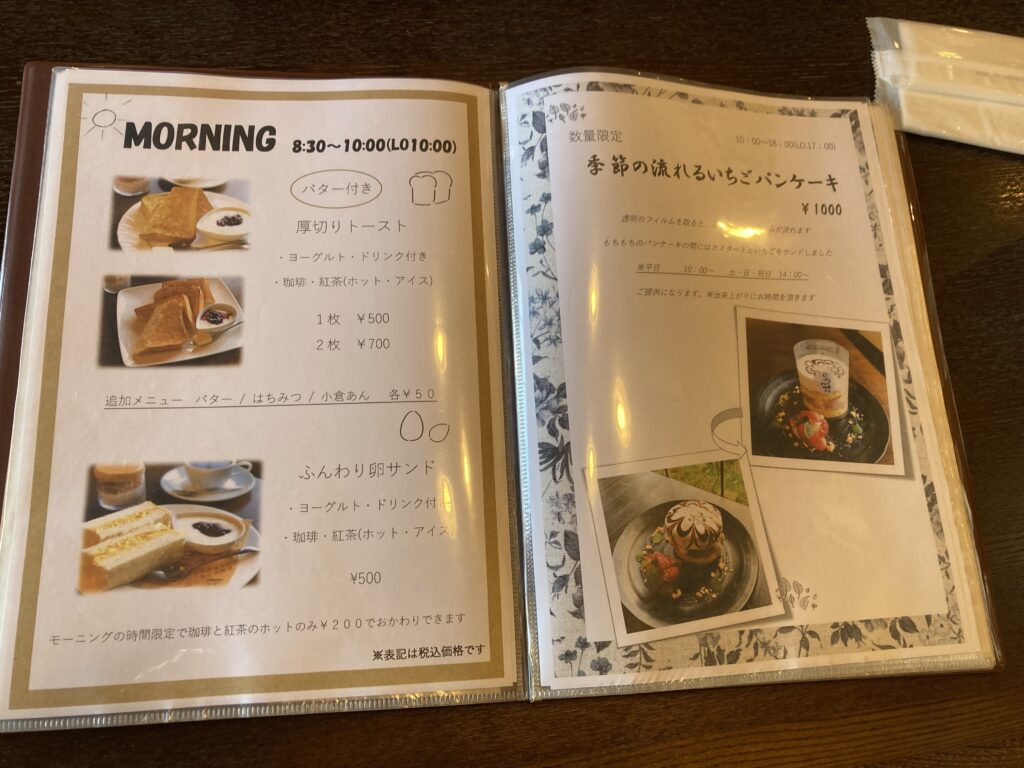 MORNING 8:30～10:00(LO10:00)
バター付き
厚切りトースト
・ヨーグルト・ドリンク付き
・珈琲・紅茶(ホット・アイス)
1枚 ￥500
2枚 ￥700
追加メニュー バター / はちみつ / 小倉あん 各￥５０
ふんわり卵サンド
・ヨーグルト・ドリンク付
・珈琲・紅茶(ホット・アイス)
¥500
モーニングの時間限定で珈琲と紅茶のホットのみ￥２００でおかわりできます
※表記は税込価格です
数量限定
10：00～18：00(LO.17：00)
季節の流れるいちごパンケーキ
￥1000
透明のフィルムを取ると、 ムが流れます
もちもちのパンケーキの間にはカスタードといちごをサンドしました
※平日 10：00～ 土・日・祝日 14：00～
ご提供になります。※出来上がりにお時間を頂きます